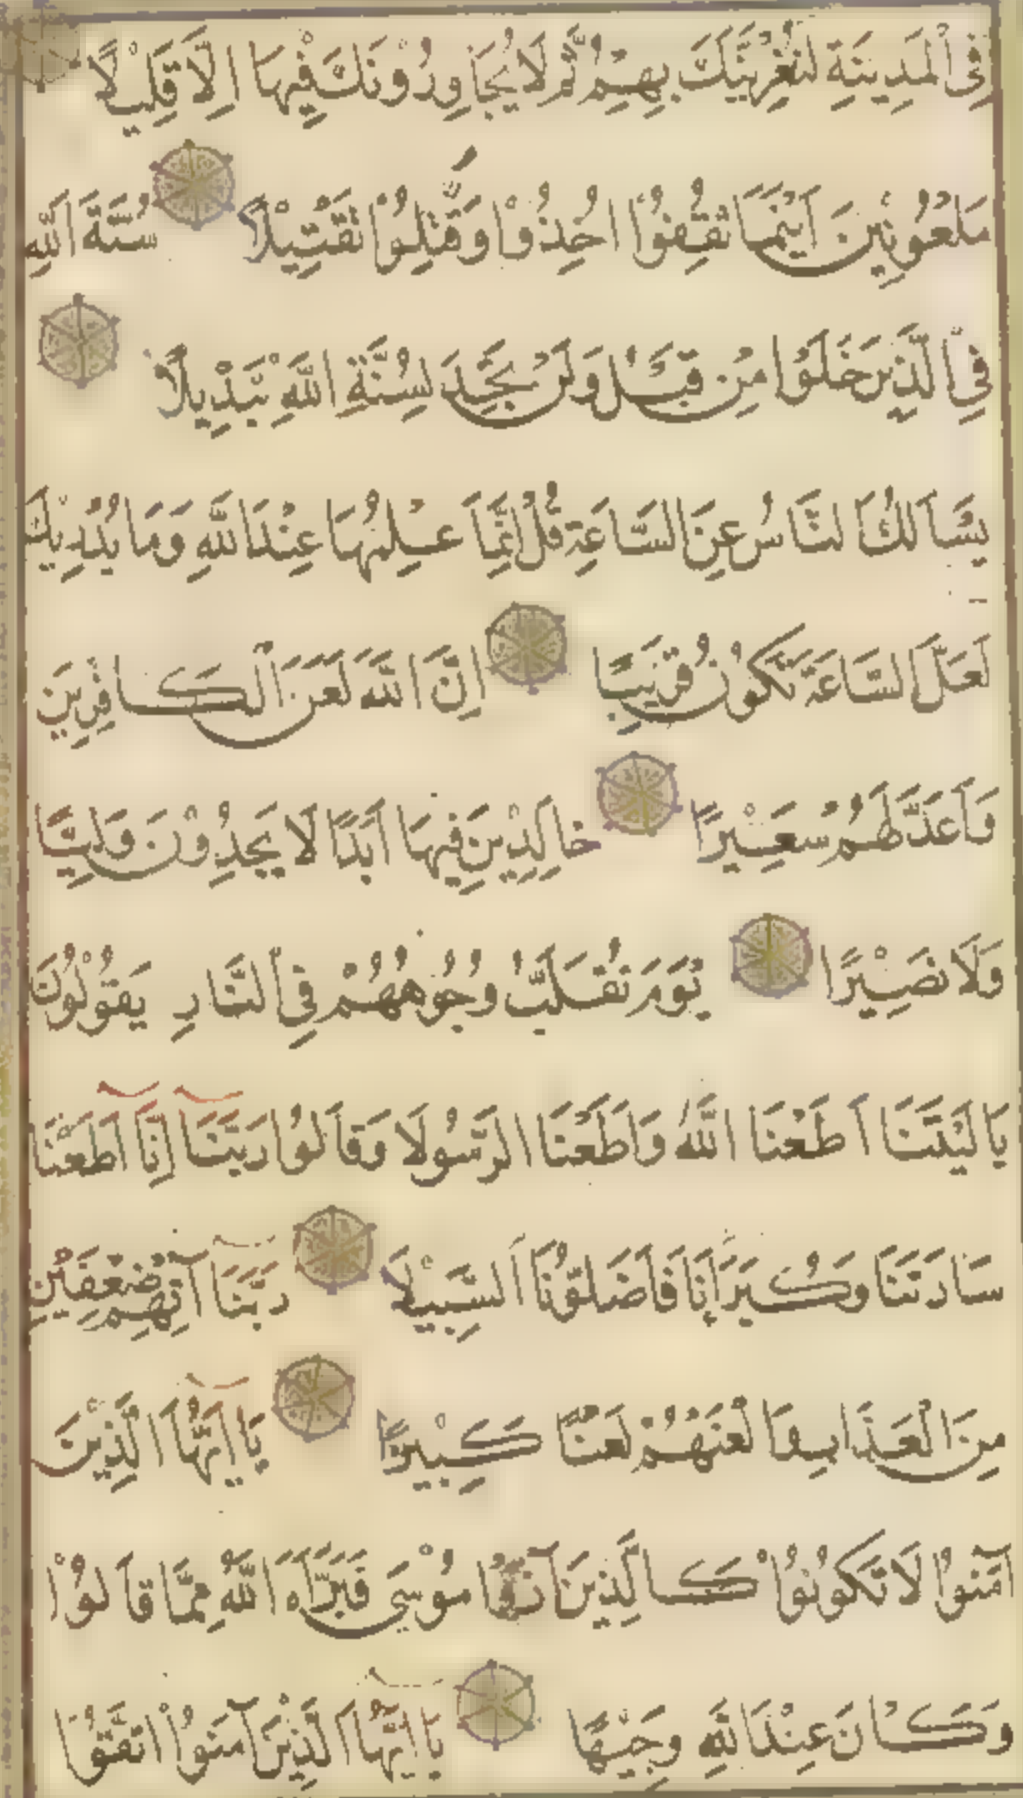 فِي الْمَدِينَةِ لَنُغْرِيَنَّكَ بِهِمْ ثُمَّ لَا يُجَاوِرُونَكَ فِيهَا اِلَّا قَلِيلًا
مَلْعُونِينَ اَيْنَمَا ثُقِفُوا اُخِذُوا وَقُتِّلُوا تَقْتِيلًا سُنَّةَ اللّٰهِ
فِي الَّذِينَ خَلَوْا مِنْ قَبْلُ وَلَنْ تَجِدَ لِسُنَّةِ اللّٰهِ تَبْدِيلًا
يَسْاَلُكَ النَّاسُ عَنِ السَّاعَةِ قُلْ اِنَّمَا عِلْمُهَا عِنْدَ اللّٰهِ وَمَا يُدْرِيكَ
لَعَلَّ السَّاعَةَ تَكُونُ قَرِيبًا اِنَّ اللّٰهَ لَعَنَ الْكَافِرِينَ
وَاَعَدَّ لَهُمْ سَعِيرًا خَالِدِينَ فِيهَا اَبَدًا لَا يَجِدُونَ وَلِيًّا
وَلَا نَصِيرًا يَوْمَ تُقَلَّبُ وُجُوهُهُمْ فِي النَّارِ يَقُولُونَ
يَا لَيْتَنَا اَطَعْنَا اللّٰهَ وَاَطَعْنَا الرَّسُولَا وَقَالُوا رَبَّنَا اِنَّا اَطَعْنَا
سَادَتَنَا وَكُبَرَاءَنَا فَاَضَلُّونَا السَّبِيلَا رَبَّنَا آتِهِمْ ضِعْفَيْنِ
مِنَ الْعَذَابِ وَالْعَنْهُمْ لَعْنًا كَبِيرًا يَا اَيُّهَا الَّذِينَ
آمَنُوا لَا تَكُونُوا كَالَّذِينَ آذَوْا مُوسَى فَبَرَّاَهُ اللّٰهُ مِمَّا قَالُوا
وَكَانَ عِنْدَ اللّٰهِ وَجِيهًا يَا اَيُّهَا الَّذِينَ آمَنُوا اتَّقُوا